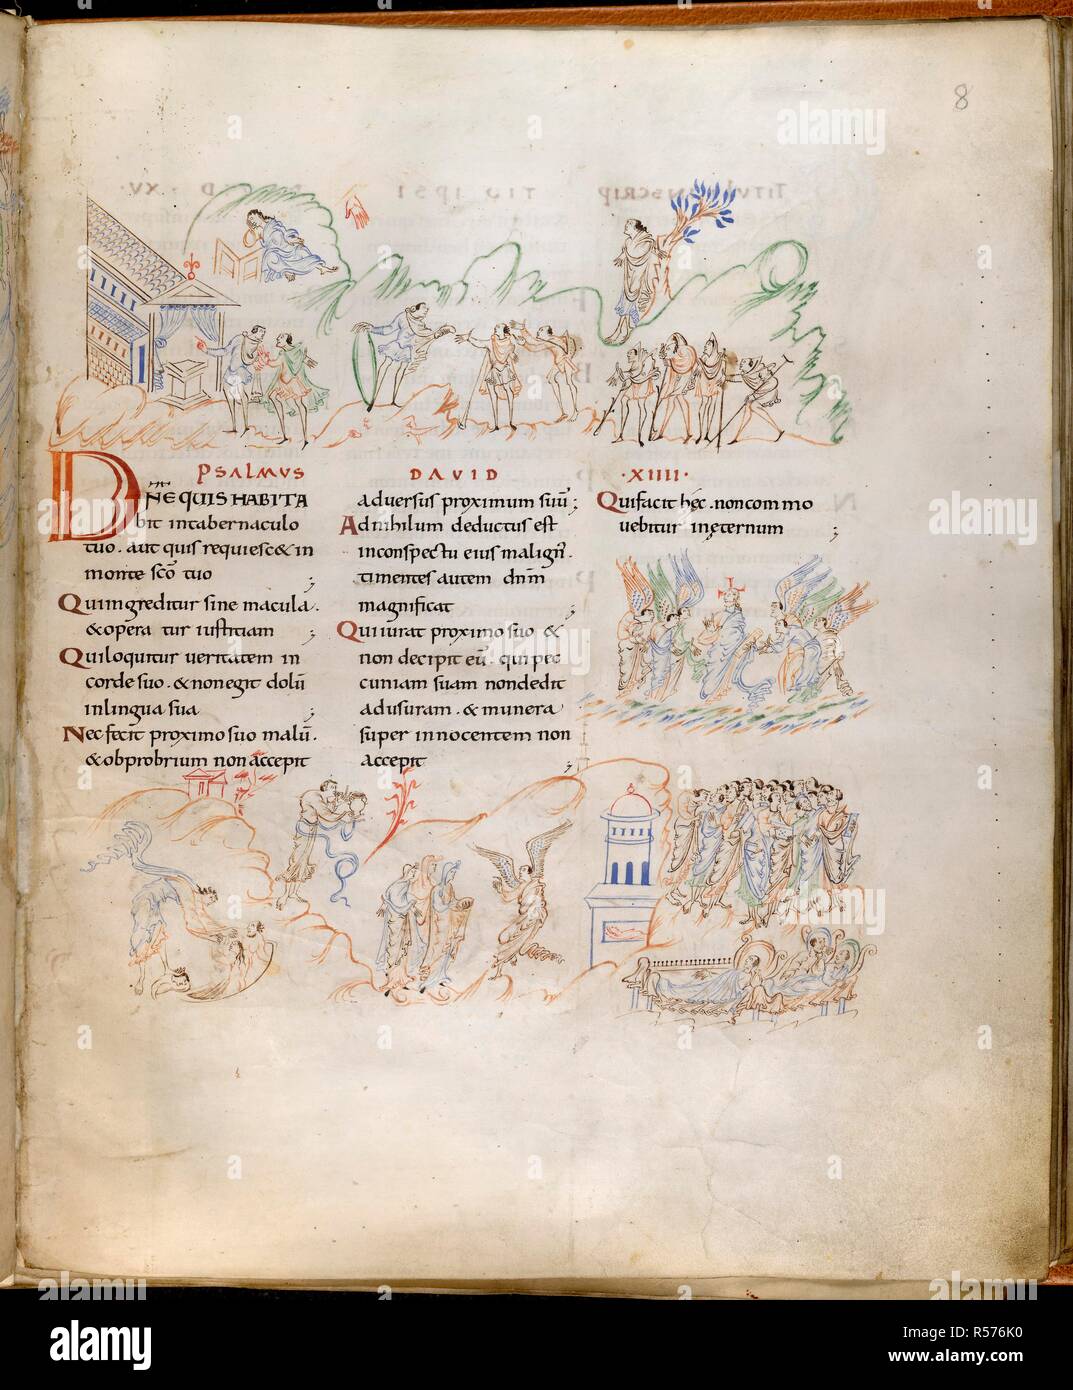 8
PSALMVS DAVID ·XIIII·
DNE QUIS HABITA
bit intabernaculo
tuo. aut quis requiesc& in
monte sco tuo ;
Quiingreditur sine macula.
& opera tur iustitiam ;
Quiloquitur ueritatem in
corde suo. & nonegit dolū
inlingua sua ;
Necfecit proximo suo malū.
& obprobrium non accepit
aduersus proximum suū ;
Adnihilum deductus est
inconspectu eius malign̄.
timentes autem dn̄m
magnificat ;
Quiiurat proximo suo &
non decipit eū. qui pec
cuniam suam nondedit
adusuram. & munera
super innocentem non
accepit ;
Quifacit hęc. noncommo
uebitur inęternum ;
alamy
alamy stock photo
alamy
Image ID: R576K0
www.alamy.com